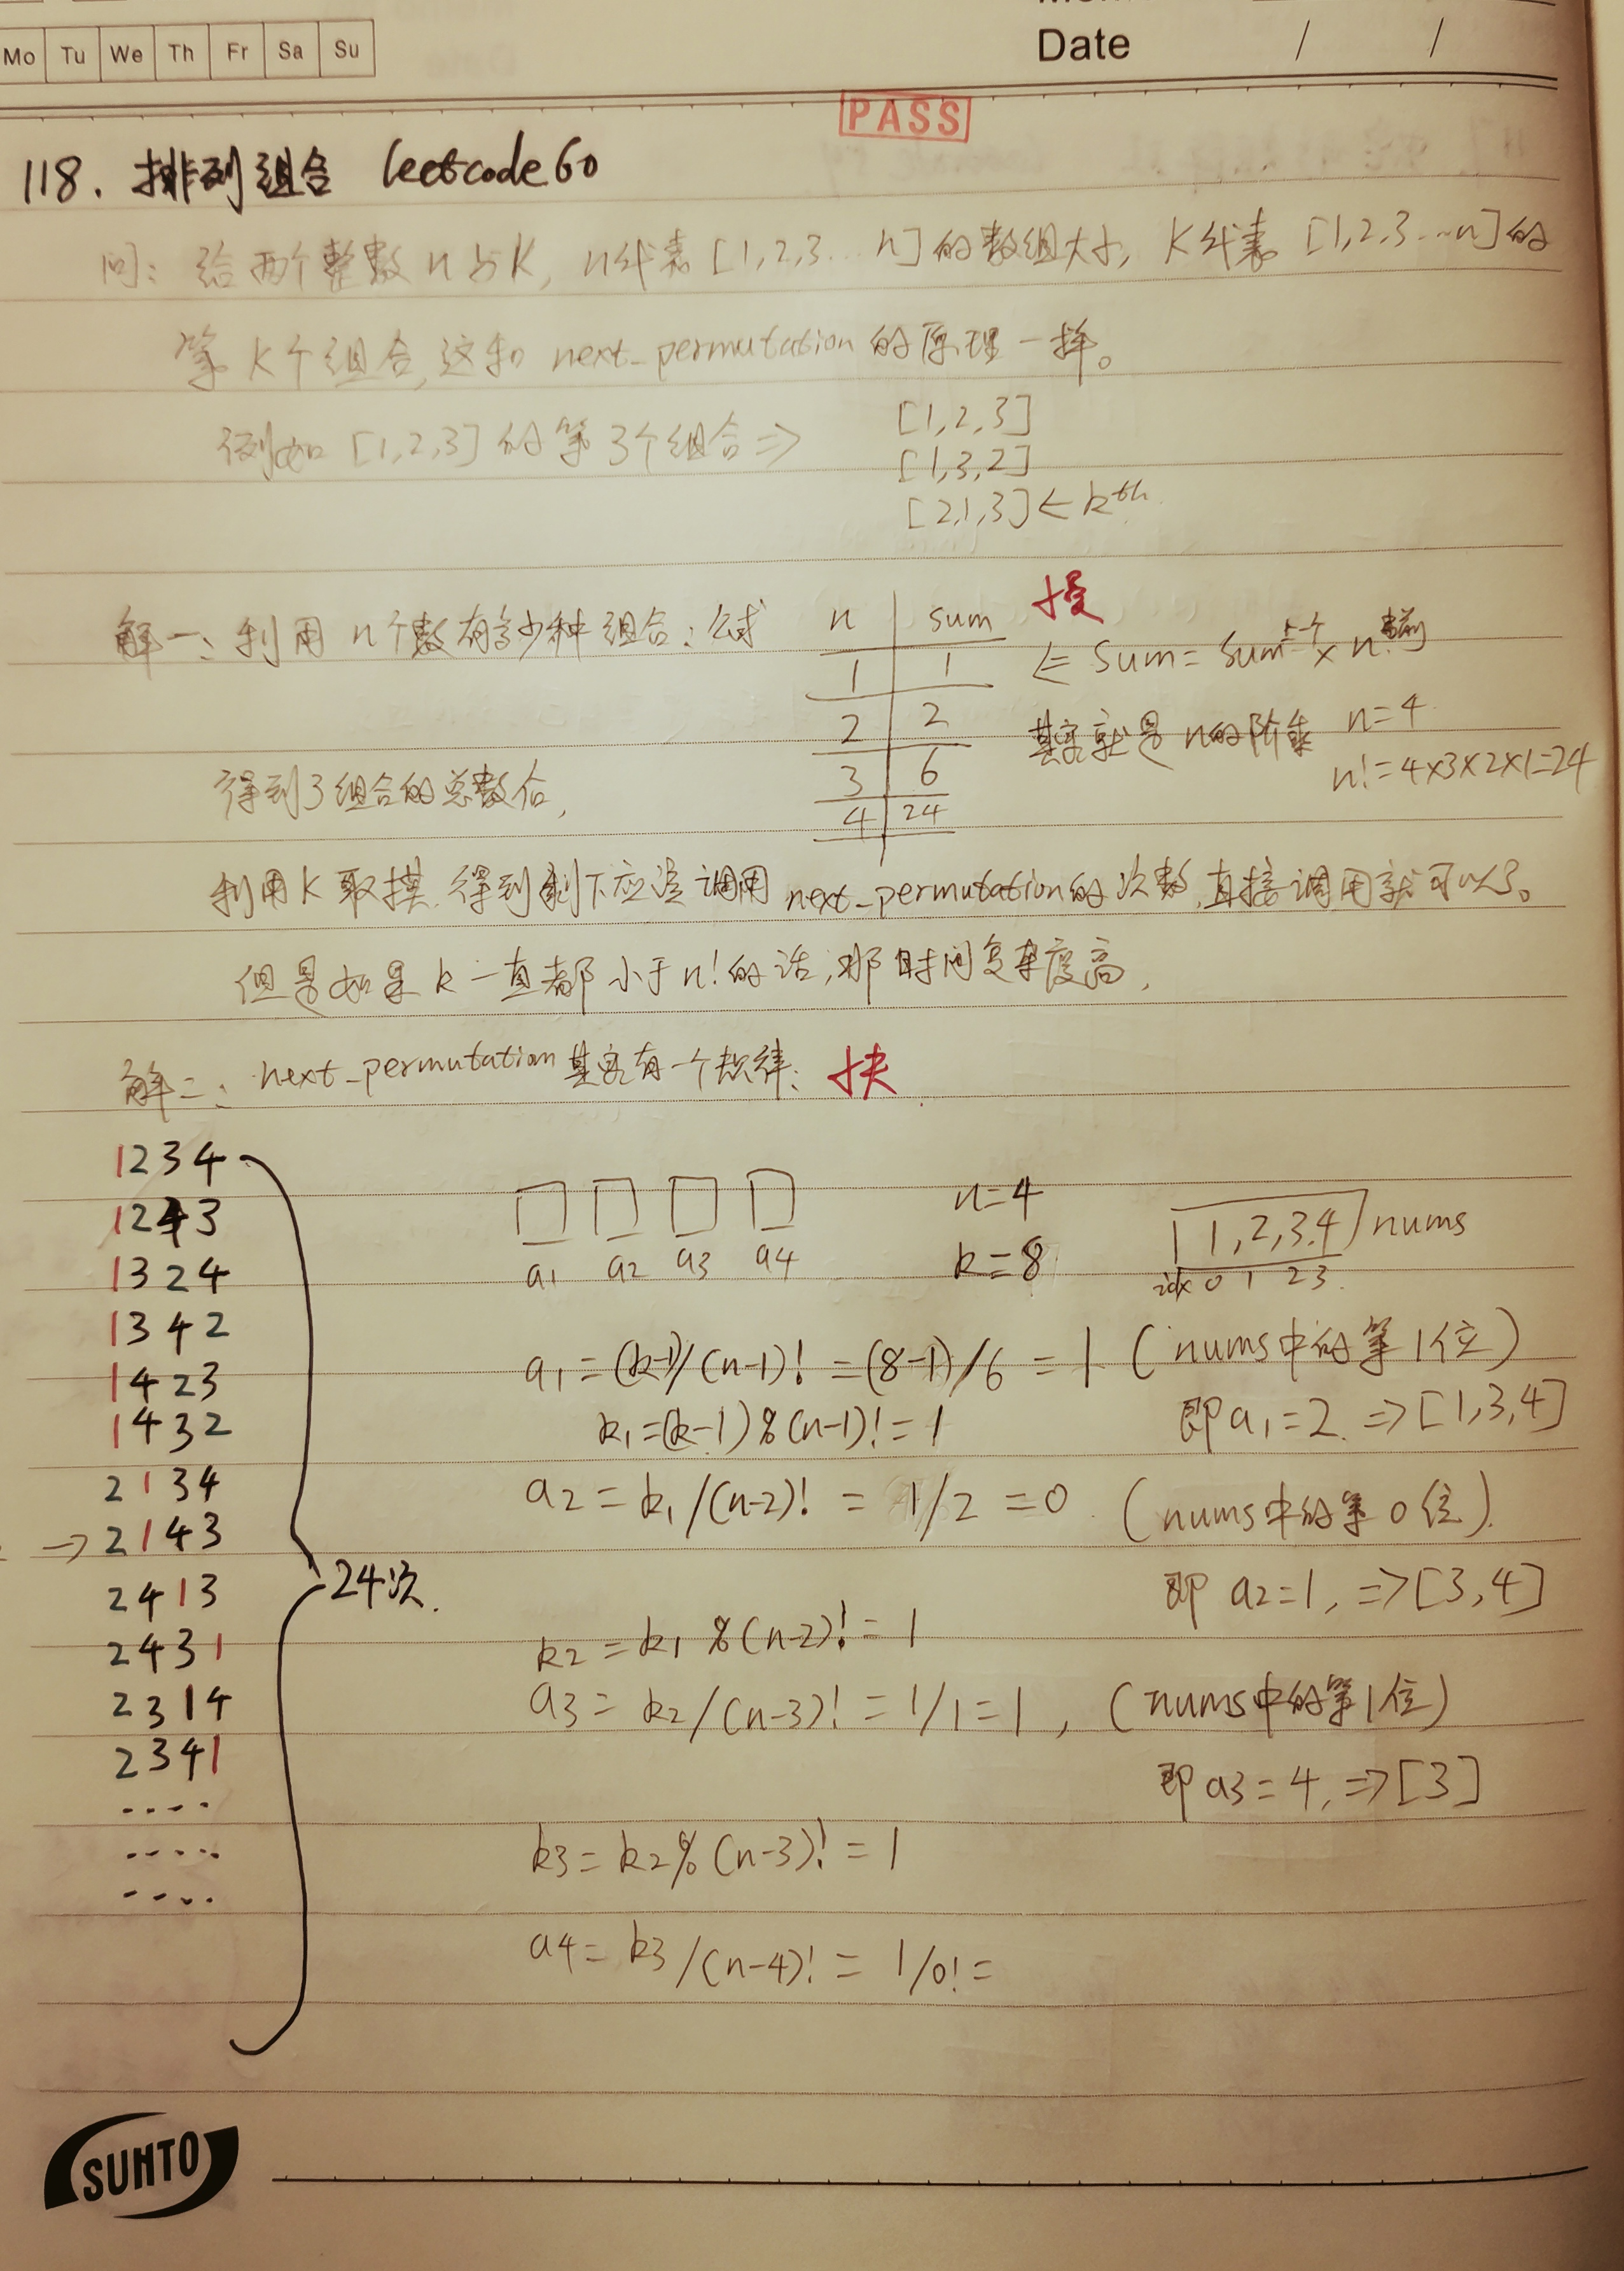 Mo Tu We Th Fr Sa Su
Date / /
PASS
118. 排列组合 leetcode60
问: 给两个整数 n 与 K, n代表 [1,2,3...n] 的数组大小, K代表 [1,2,3...n] 的
第 K个组合, 这和 next_permutation 的原理一样。
例如 [1,2,3] 的第3个组合 =>
[1,2,3]
[1,3,2]
[2,1,3] <= kth
解一: 利用 n个数有多少种组合: 公式
n sum
1 1
2 2
3 6
4 24
慢
<= Sum = Sum上一个 × n当前
其实就是 n的阶乘 n=4
n! = 4×3×2×1=24
得到了组合的总数后,
利用K取摸 得到剩下应该调用 next_permutation的次数, 直接调用就可以了。
但是如果 k 一直都小于n!的话, 那时间复杂度高,
解二: next_permutation 其实有一个规律: 快
1234
1243
1324
1342
1423
1432
2134
=> 2143
2413
2431
2314
2341
....
....
....
24次.
a1 a2 a3 a4
n=4
k=8
1,2,3,4 nums
idx 0 1 2 3
a1 = (k-1)/(n-1)! = (8-1)/6 = 1 (nums中的第1位)
k1=(k-1)%(n-1)! = 1
即a1=2. => [1,3,4]
a2 = k1/(n-2)! = 1/2 = 0 (nums中的第0位).
即 a2=1, => [3,4]
k2 = k1 %(n-2)! = 1
a3 = k2/(n-3)! = 1/1=1, (nums中的第1位)
即 a3=4, => [3]
k3= k2%(n-3)! = 1
a4= k3/(n-4)! = 1/0! =
SUNTO